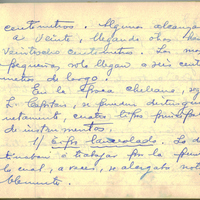 centímetros. Algunos alcanzan
de veinte, llegando otros has
veintiocho centímetros. Los ma
pequeños, solo llegan a seis cent
metros de largo.
En la Época chilena, se
L. Capitan, se pueden distingui
netamente, cuatro tipos principa
de instrumentos.
1/ Tipo lanceolado. Los d
tinaban a trabajar por la pun
lo cual, a veces, se alargaba not
blemente.